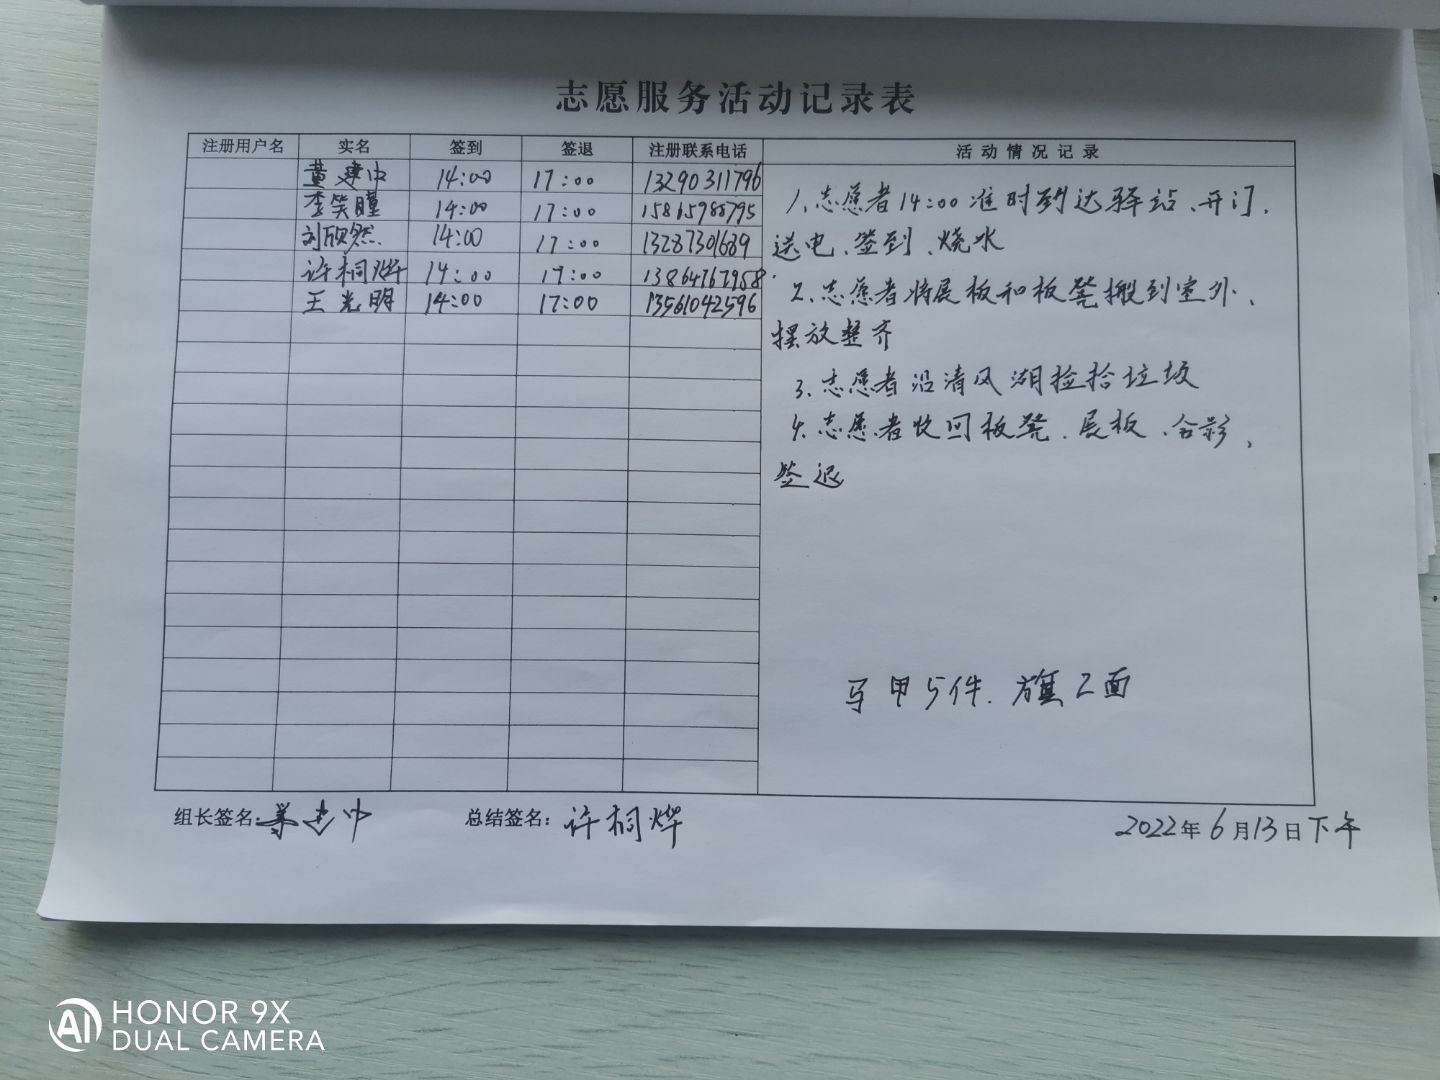 志愿服务活动记录表
注册用户名 实名 签到 签退 注册联系电话 活动情况记录
董建中 14:00 17:00 13290311796
李笑瞳 14:00 17:00 15865988795
刘欣然 14:00 17:00 13287301689
许桐烨 14:00 17:00 13864767958
王光明 14:00 17:00 13561042596
1、志愿者14:00准时到达驿站、开门、
送电、签到、烧水
2、志愿者将展板和板凳搬到室外、
摆放整齐
3、志愿者沿清风湖捡拾垃圾
4、志愿者收回板凳、展板、合影、
签退
马甲5件、旗2面
组长签名:董建中 总结签名:许桐烨 2022年6月13日下午
HONOR 9X
DUAL CAMERA